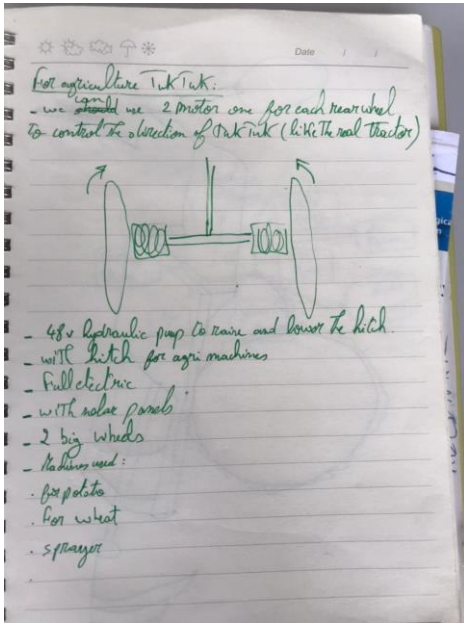 Date / /
For agriculture TukTuk:
- we can should use 2 motor one for each rear wheel
to control the direction of TukTuk (like the real Tractor)
- 48v hydraulic pump to raise and lower the hitch.
- with hitch for agri machines
- Full electric
- with solar panels
- 2 big wheels
- Machines used:
. for potato
. For wheat
. sprayer
.